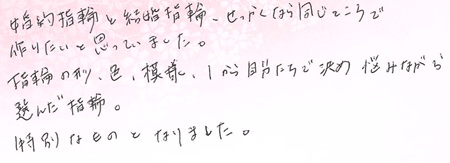 婚約指輪と結婚指輪、せっかくなら同じところで
作りたいと思っていました。
指輪の形、色、模様、1から自分たちで決め 悩みながら
選んだ指輪。
特別なものとなりました。